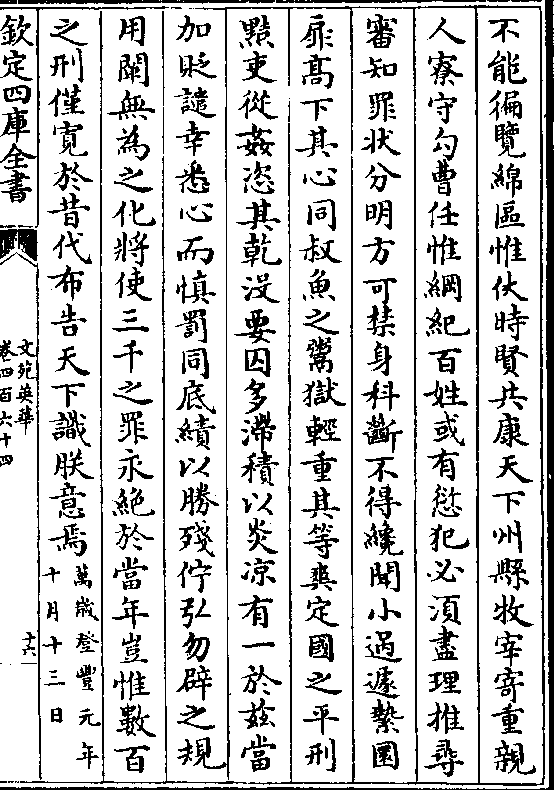 不能徧覽綿區惟伏時賢共康天下州縣牧宰寄重親
人寮守勾曹任惟綱紀百姓或有愆犯必須盡理推尋
審知罪狀分明方可禁身科斷不得纔聞小過遽縶囹
扉髙下其心同叔魚之鬻獄輕重其等爽定國之平刑
黠吏從姦恣其乾没要囚多滯積以炎凉有一於兹當
加貶譴幸悉心而慎罰同底績以勝殘佇弘勿辟之規
用闡無為之化將使三千之罪永絶於當年豈惟數百
之刑僅寛於昔代布告天下識朕意焉萬歳登豐元年十月十三日
欽定四庫全書
文苑英華
卷四百六十四
十六